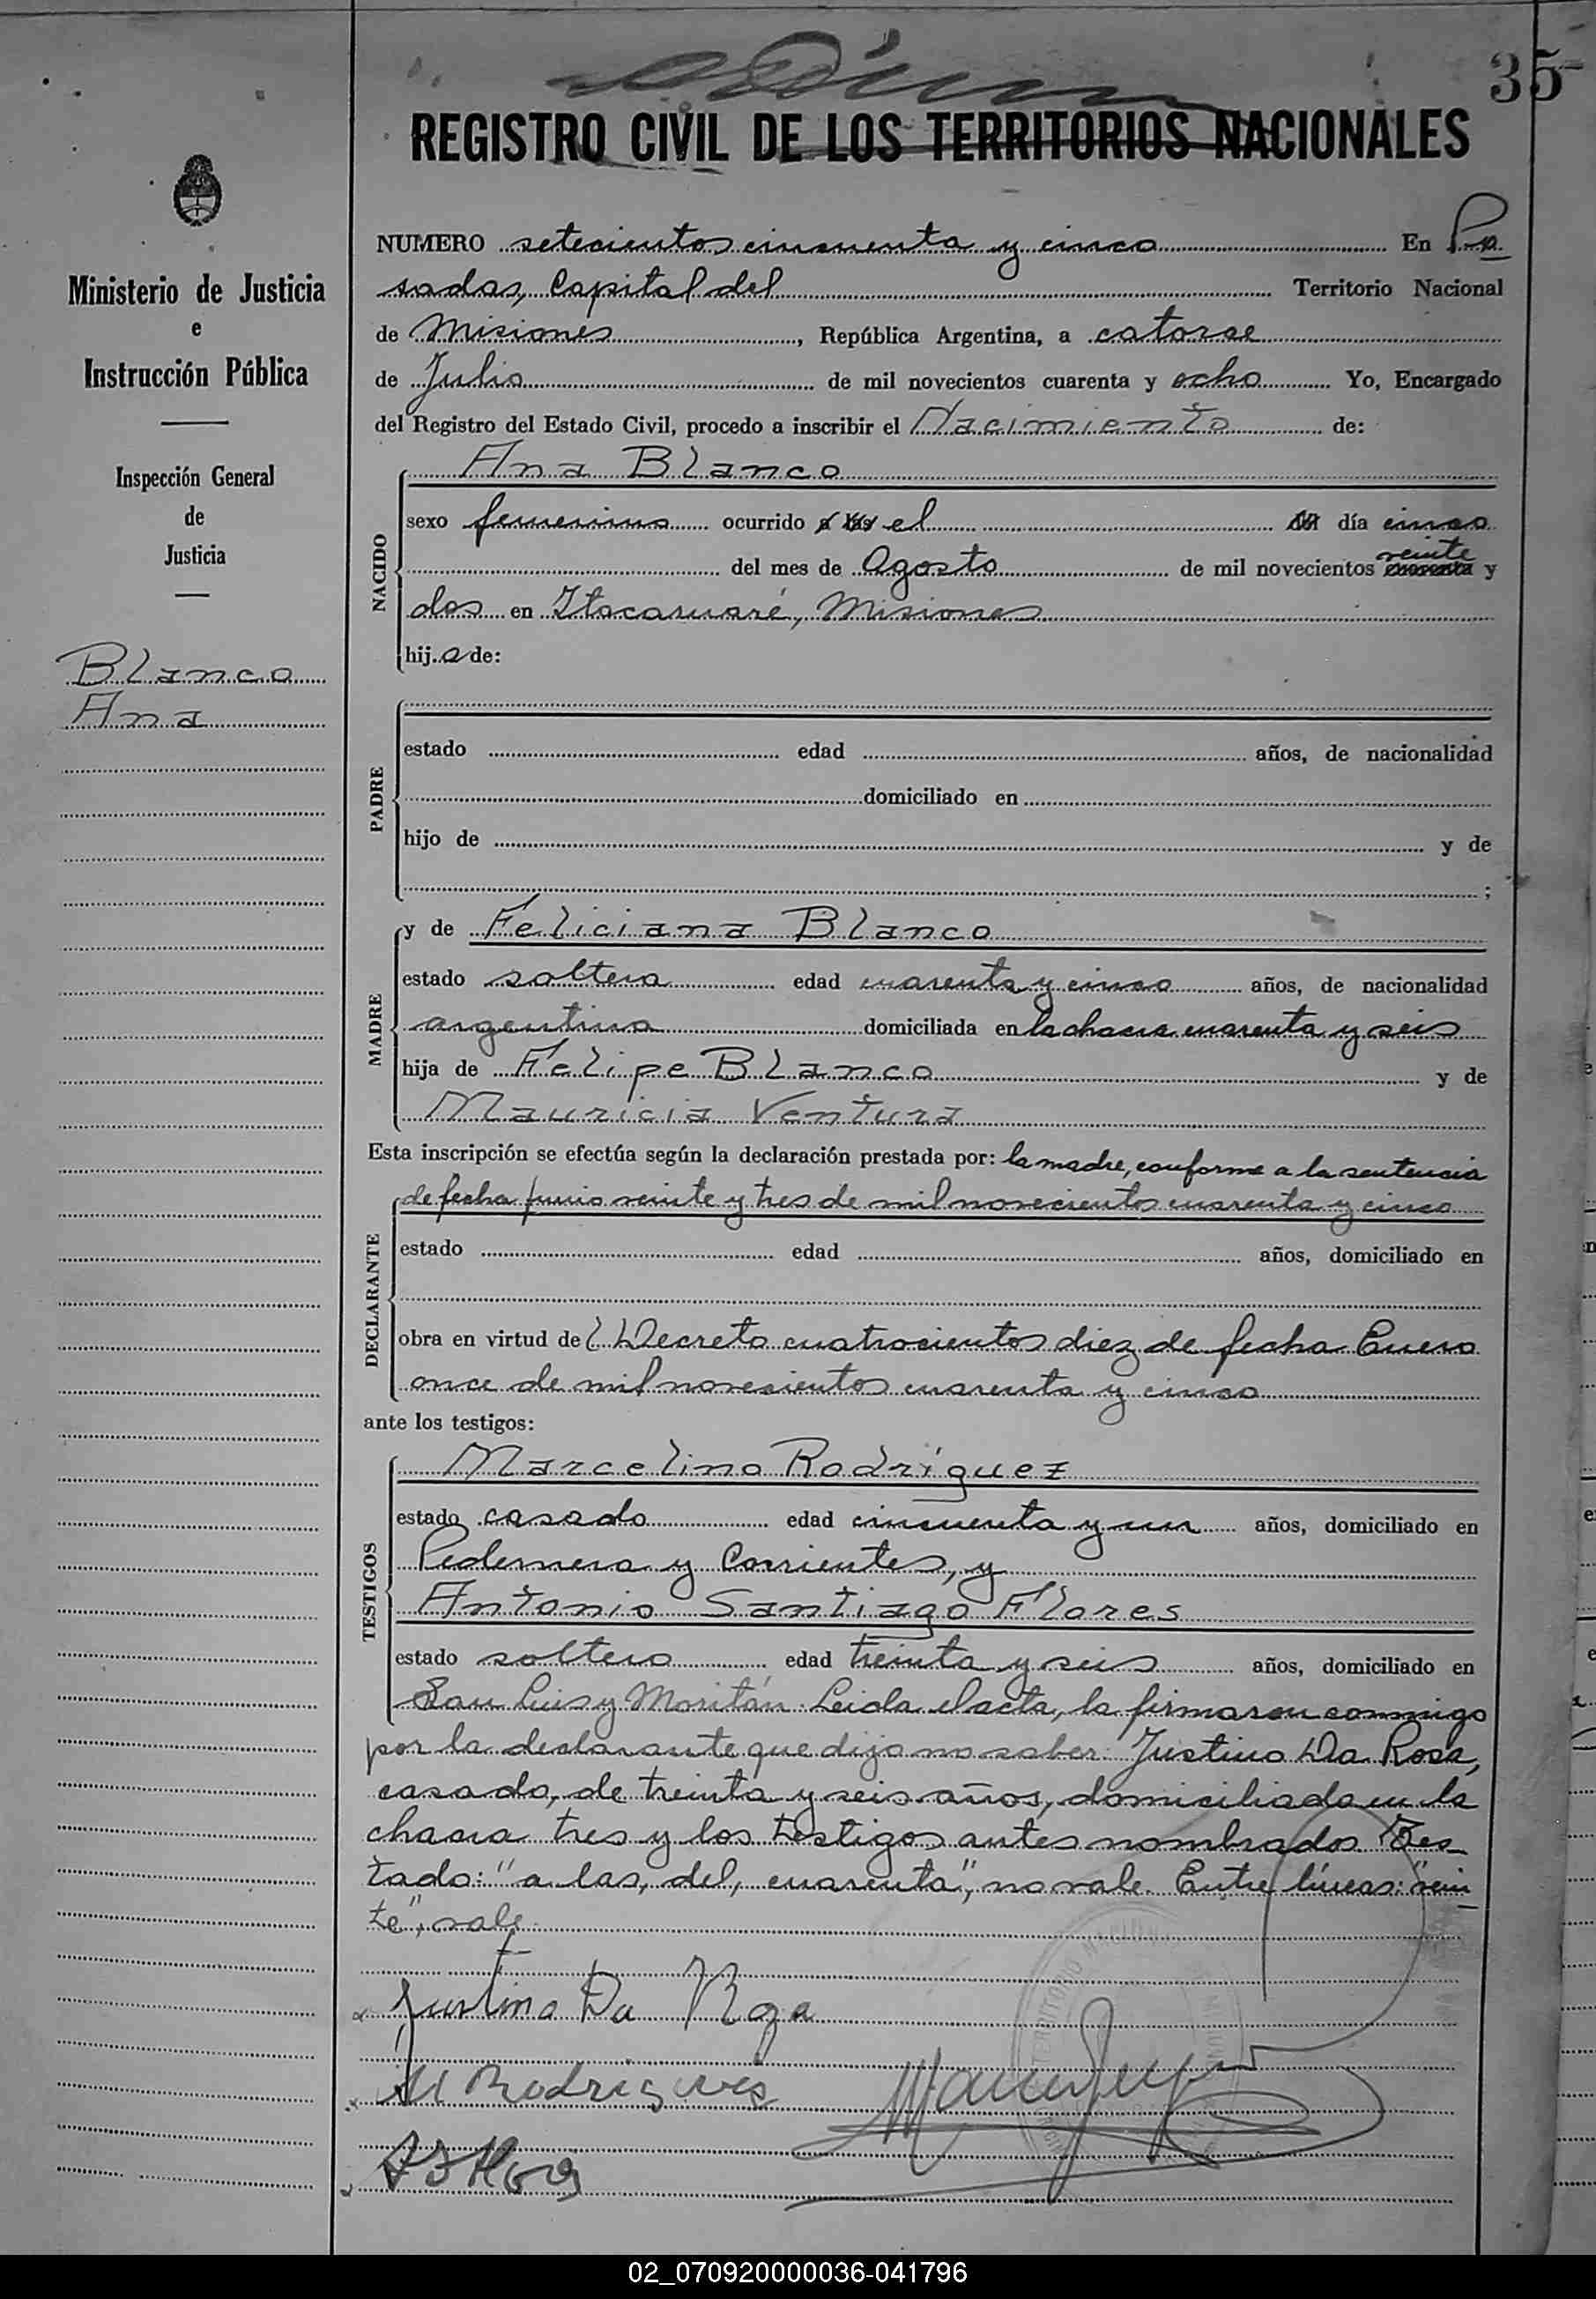 35
REGISTRO CIVIL DE LOS TERRITORIOS NACIONALES
Ministerio de Justicia
e
Instrucción Pública
Inspección General
de
Justicia
Blanco
Ana
NUMERO setecientos cincuenta y cinco En Po
sadas, Capital del Territorio Nacional
de Misiones, República Argentina, a catorce
de Julio de mil novecientos cuarenta y ocho Yo, Encargado
del Registro del Estado Civil, procedo a inscribir el Nacimiento de:
NACIDO
Ana Blanco
sexo femenino ocurrido a las el del día cinco
del mes de Agosto de mil novecientos cuarenta veinte y
dos en Itacaruaré, Misiones
hija de:
PADRE
estado edad años, de nacionalidad
domiciliado en
hijo de y de
;
MADRE
y de Feliciana Blanco
estado soltera edad cuarenta y cinco años, de nacionalidad
argentina domiciliada en la chacra cuarenta y seis
hija de Felipe Blanco y de
Mauricia Ventura
Esta inscripción se efectúa según la declaración prestada por: la madre, conforme a la sentencia
de fecha junio veinte y tres de mil novecientos cuarenta y cinco
DECLARANTE
estado edad años, domiciliado en
obra en virtud del Decreto cuatrocientos diez de fecha Enero
once de mil novecientos cuarenta y cinco
ante los testigos:
TESTIGOS
Marcelino Rodríguez
estado casado edad cincuenta y un años, domiciliado en
Pedernera y Corrientes, y
Antonio Santiago Flores
estado soltero edad treinta y seis años, domiciliado en
San Luis y Moritán. Leida el acta, la firmaron conmigo
por la declarante que dijo no saber: Justino Da Rosa,
casado, de treinta y seis años, domiciliado en la
chacra tres y los testigos antes nombrados. Tes-
tado: "a las, del, cuarenta", no vale. Entre líneas: "vein
te", vale.
Justino Da Roza
M Rodrigues
02_070920000036-041796